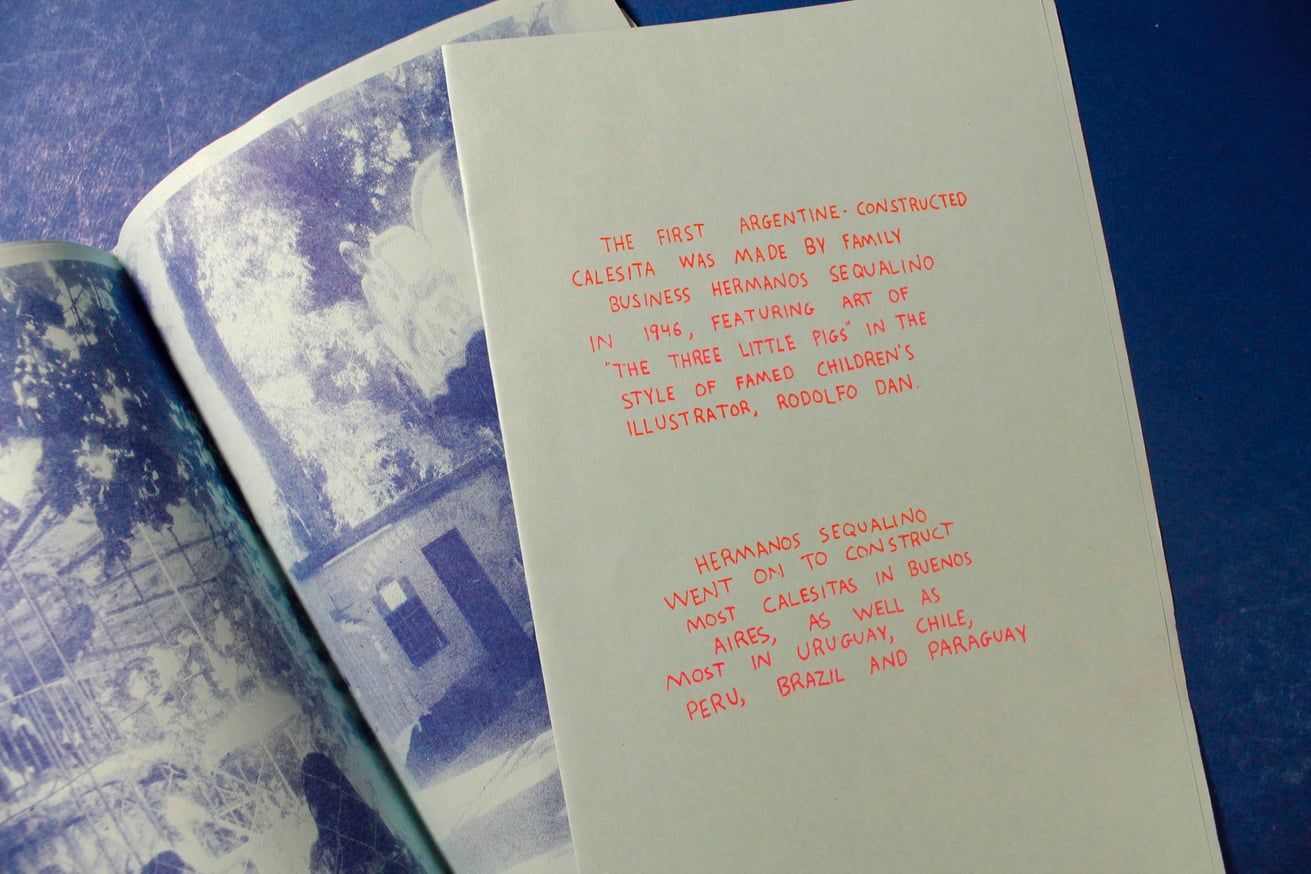 THE FIRST ARGENTINE-CONSTRUCTED
CALESITA WAS MADE BY FAMILY
BUSINESS HERMANOS SEQUALINO
IN 1946, FEATURING ART OF
"THE THREE LITTLE PIGS" IN THE
STYLE OF FAMED CHILDREN'S
ILLUSTRATOR, RODOLFO DAN.
HERMANOS SEQUALINO
WENT ON TO CONSTRUCT
MOST CALESITAS IN BUENOS
AIRES, AS WELL AS
MOST IN URUGUAY, CHILE,
PERU, BRAZIL AND PARAGUAY